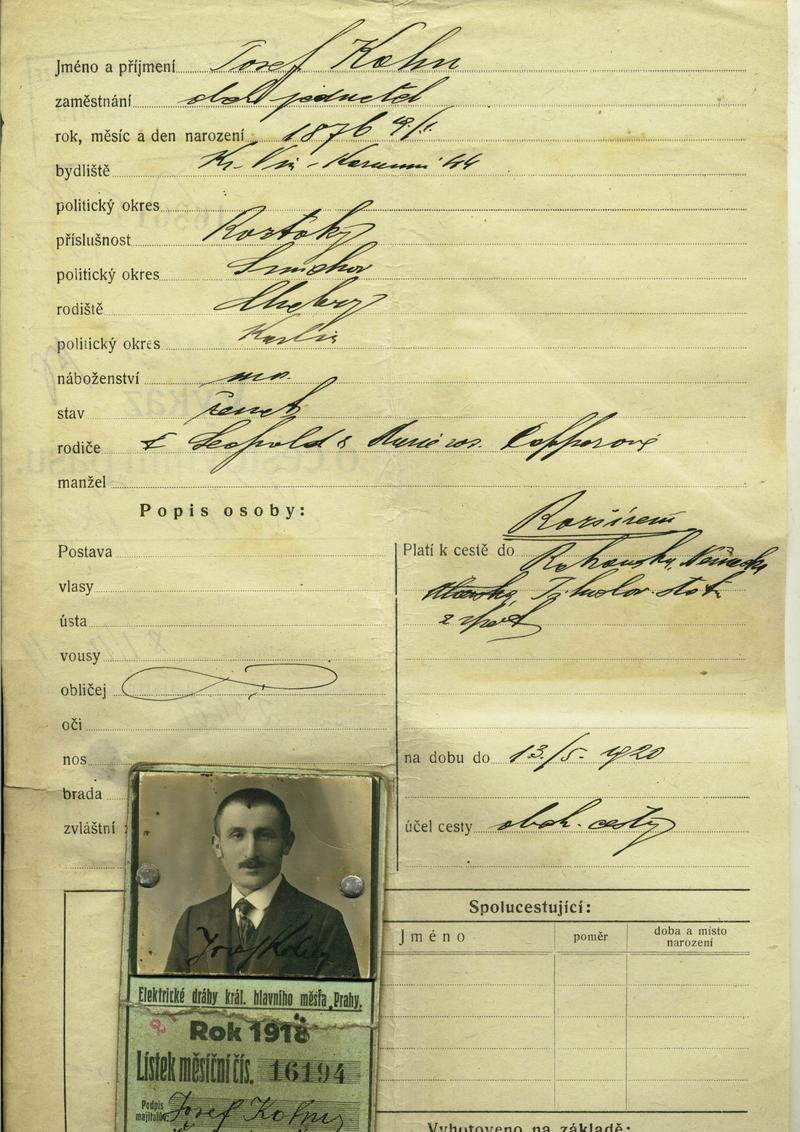 Jméno a příjmení Josef Kohn
zaměstnání obch jednatel
rok, měsíc a den narození 1876 19/1.
bydliště Kr. Vin - Korunní 44
politický okres
příslušnost Roztoky
politický okres Smíchov
rodiště
politický okres Karlín
náboženství mos.
stav ženat
rodiče Leopold & Marie roz.
manžel
Popis osoby:
Postava
vlasy
ústa
vousy
obličej
oči
nos
brada
zvláštní
Rozšíření
Platí k cestě do Rakouska, Německa
a zpět
na dobu do 13/5. 1920
účel cesty obch. cesty
Spolucestující:
Jméno poměr doba a místo narození
Vyhotoveno na základě:
Josef Kohn
Elektrické dráhy král. hlavního města Prahy.
Rok 1918
Lístek měsíční čís. 16194
Podpis majitelův: Josef Kohn